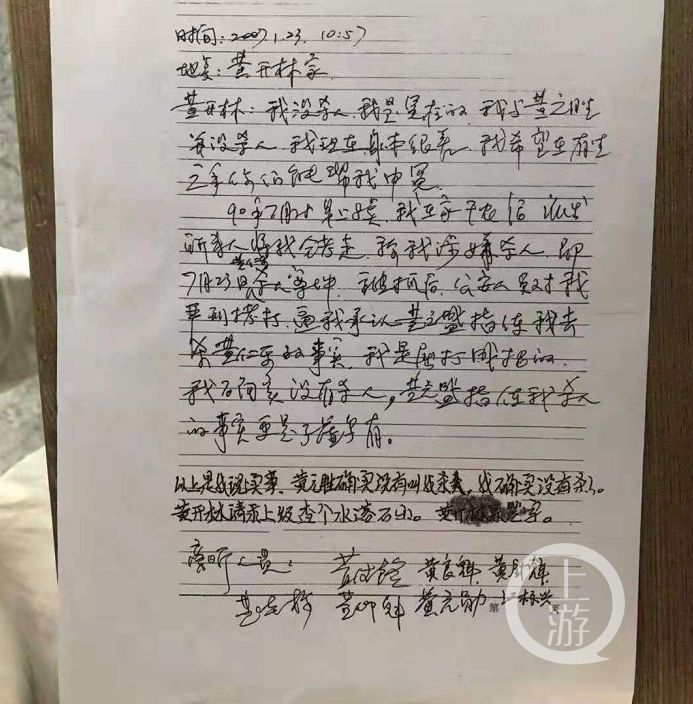 时间：2007.1.23. 10:57
地点：黄开林家
黄开林：我没杀人，我是冤枉的，我与黄元胜
并没杀人，我现在身体很差，我希望在有生
之年你们能帮我申冤。
90年7月 早上 ，我在家 派出
所来人将我铐走，称我涉嫌杀人，即
7月23日杀人案件，我被抓后，公安人员对我
严刑拷打，逼我承认黄元盛指使我去
杀黄 的事实，我是屈打成招的。
我确实没有杀人，黄元盛指使我杀人
的事实更是子虚乌有。
以上是我说实事，黄元胜确实没有叫我杀 ，我确实没有杀人。
黄开林请求上级查个水落石出。黄开林
旁听人员： 黄 黄良 黄
黄 黄 黄元勋 江 兴
第 页
上游